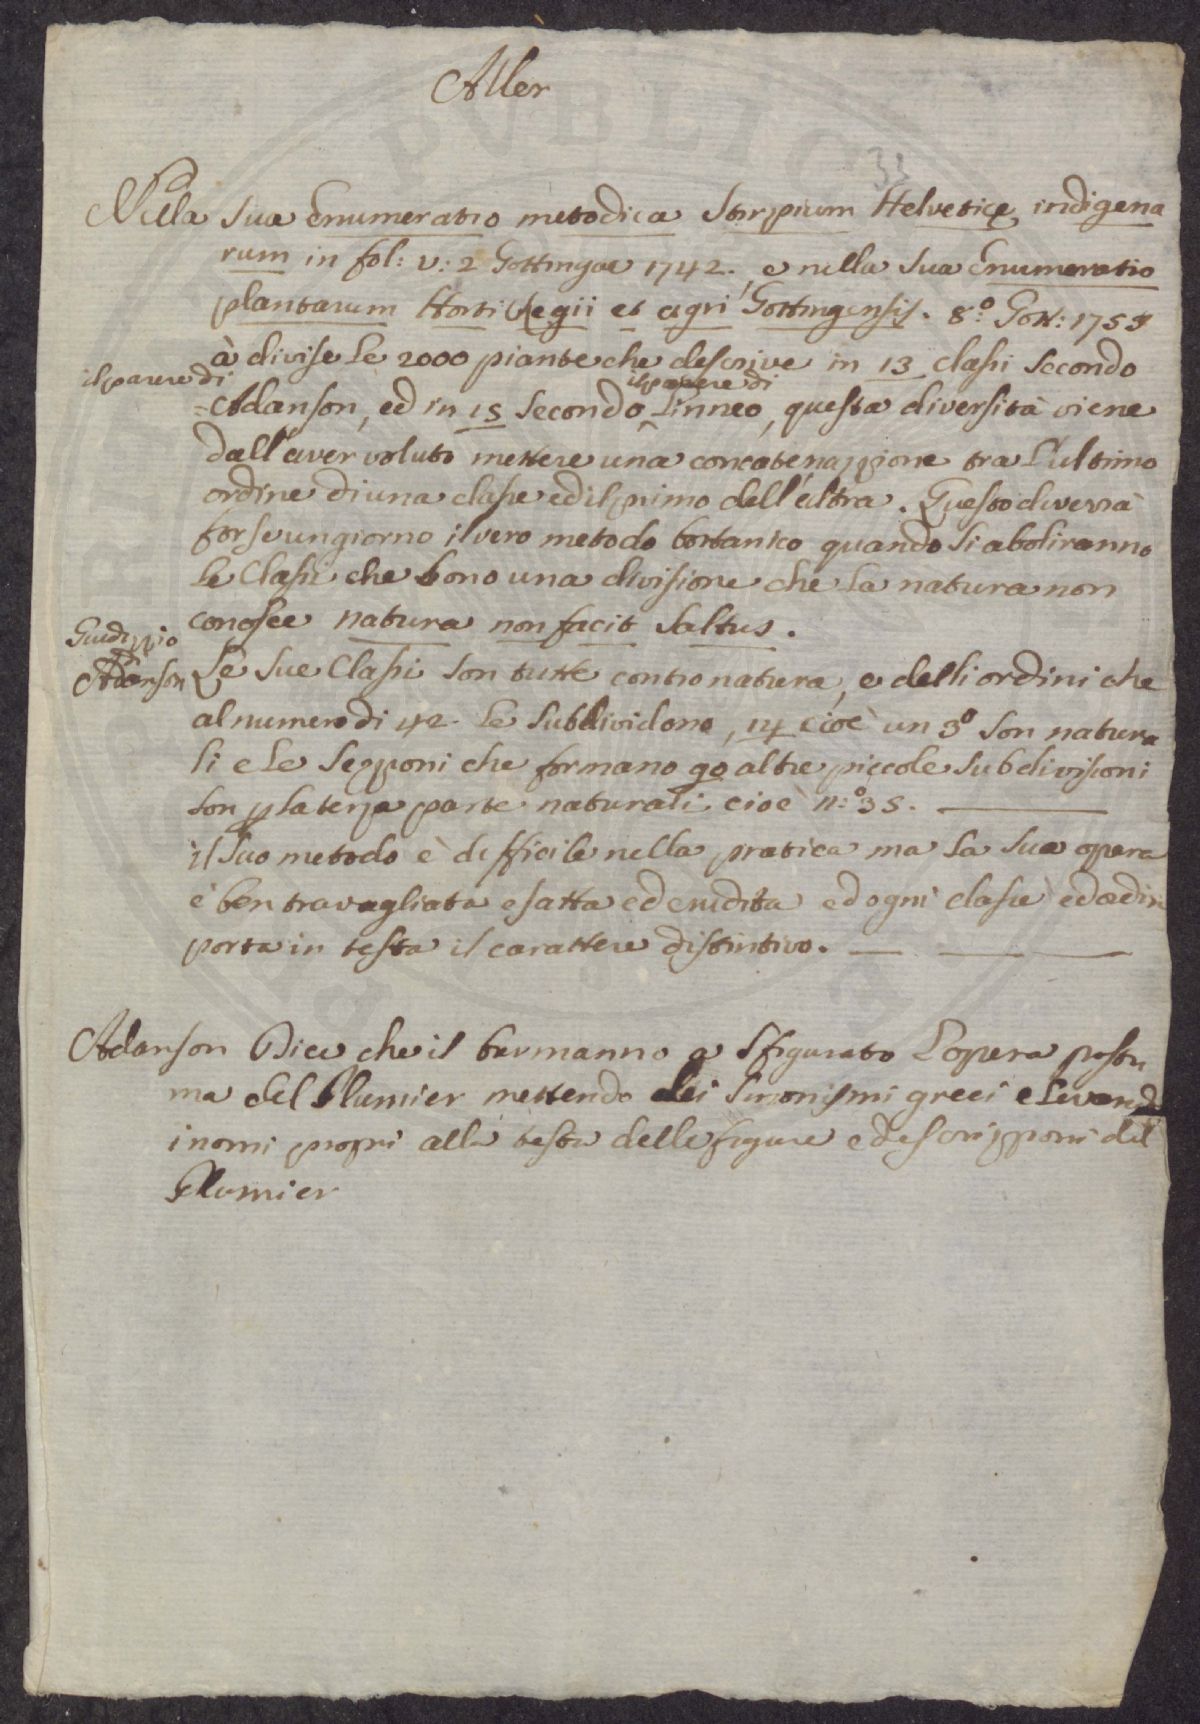 Aller
33
Nella sua Enumeratio metodica stirpium Helvetice indigena
rum in fol: v: 2 Gottingae 1742. e nella sua Enumeratio
plantarum Horti Regii et agri Gottingensis. 8.° Gott: 1753
à divise le 2000 piante che descrive in 13 clasſi secondo
il parere di
il parere di
Adanson, ed in 15 secondo Linneo, questa diversità viene
dall'aver voluto mettere una concatenazzione tra l'ultimo
ordine di una clasſe ed il primo dell'altra. Questo diverrà
forse un giorno il vero metodo bottanico quando si aboliranno
le Clasſi che sono una divisione che la natura non
conosce natura non facit saltus.
Giudizzio
Adanson
Le sue Clasſi son tutte contro natura, e delli ordini che
al numero di 42. le subdividono, 14 cioè un 3° son natura
li e le sezzoni che formano 90 altre piccole subdivisioni
son p la terza parte naturali cioè n:° 35.
il suo metodo è difficile nella pratica ma la sua opera
è ben travagliata esatta ed erudita ed ogni clasſe ed ordin
porta in testa il carattere distintivo.
Adanson Dice che il burmanno a sfigurato l'opera postu
ma del Plumier mettendo dei sinonismi greci e levando
i nomi propri alla testa delle figure e descrizzoni del
Plumier